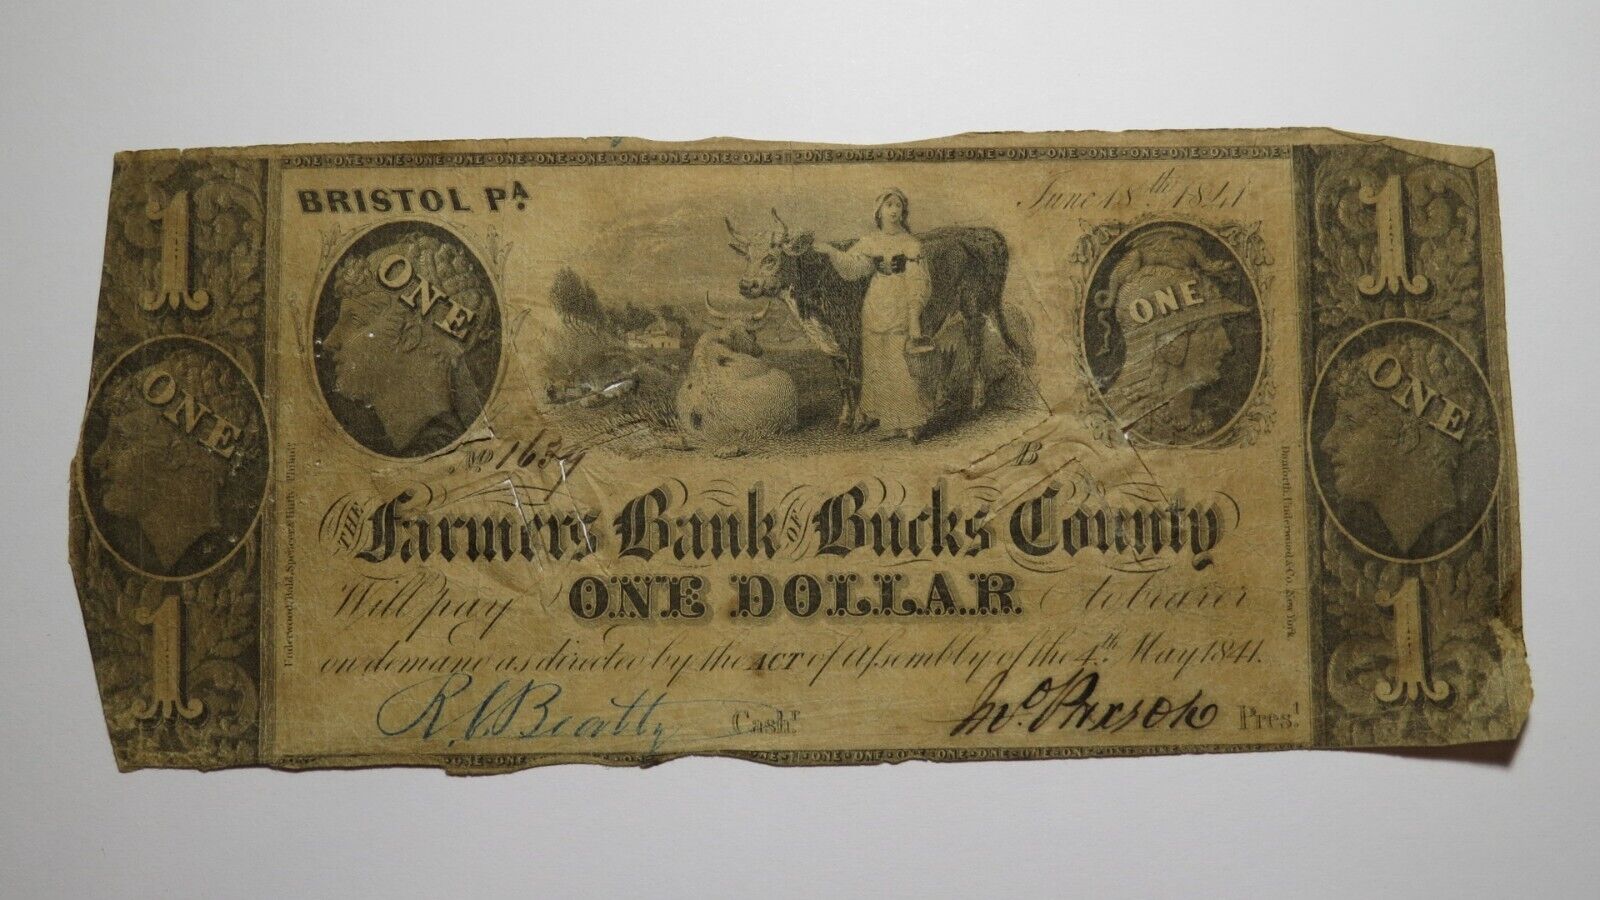 ONE·ONE·ONE·ONE·ONE·ONE·ONE·ONE·ONE·ONE·ONE·ONE·ONE·ONE·ONE·ONE·ONE·ONE·ONE·ONE·ONE·ONE·ONE
1
BRISTOL PA.
June 18th 1841
1
ONE
ONE
ONE
ONE
No 1639
B
THE Farmers Bank OF Bucks County
Will pay ONE DOLLAR to bearer
on demand as directed by the ACT of Assembly of the 4th May 1841.
1
1
R. C. Beatty Cashr
Jno. Paxson Prest
Underwood, Bald, Spencer & Hufty, Philada
Danforth, Underwood & Co. New York.
ONE·ONE ONE·ONE·ONE·ONE·ONE·ONE·ONE·ONE·ONE·ONE